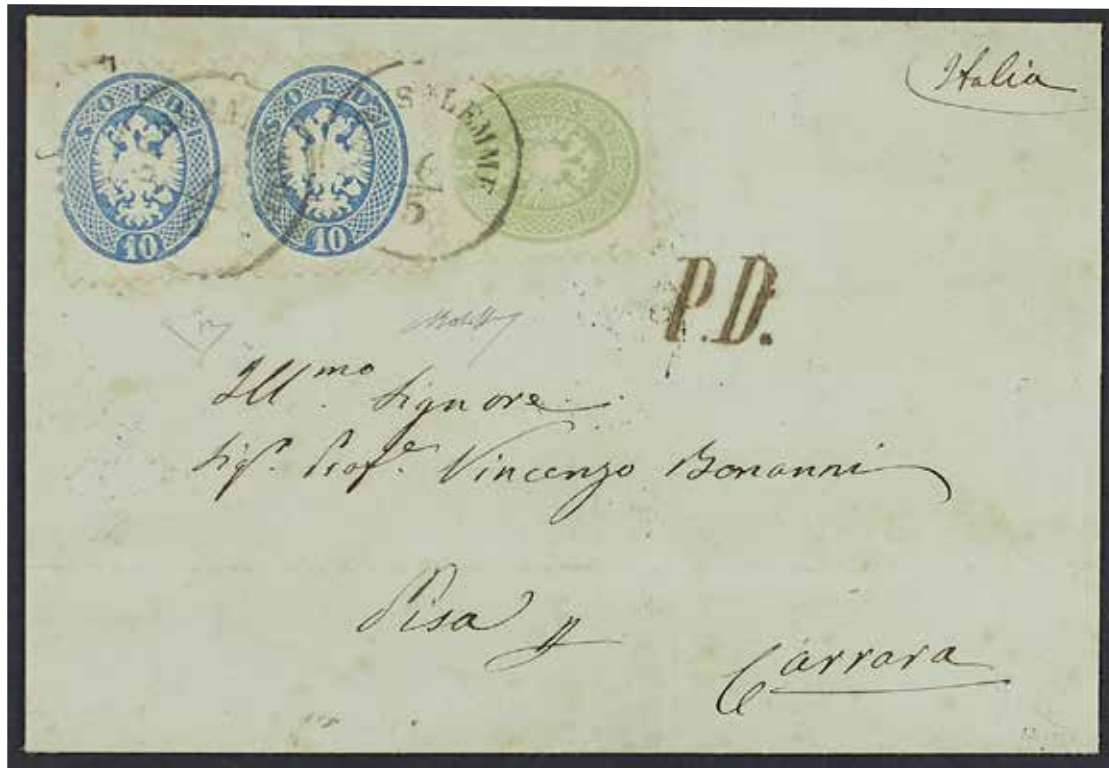 Italia
SOLDI 10
SOLDI 10
6/5
P.D.
Ill.mo Signore
Sigr. Profe. Vincenzo Bonanni
Pisa
Carrara